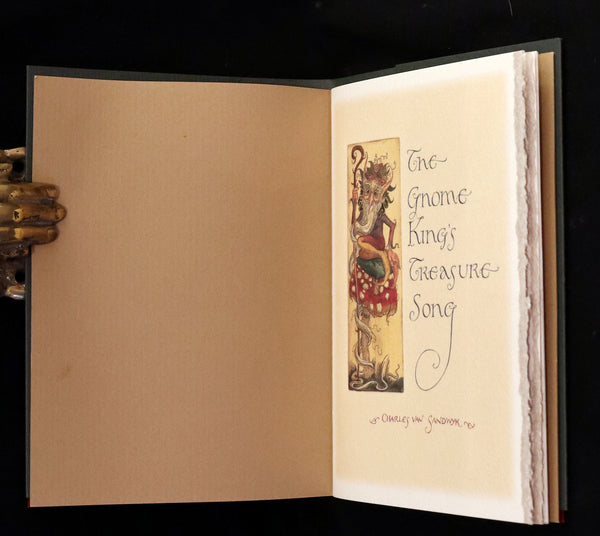 The
Gnome
King's
Treasure
Song
Charles van Sandwyk